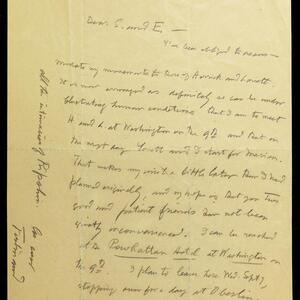 Dear S. and E. —
I've been obliged to accom-
modate my movements to those of Herrick and Lovett.
It is now arranged as definitely as can be under
fluctuating human conditions that I am to meet
H and L at Washington on the 9th and that on
the next day Lovett and I start for Marion.
That makes my visit a little later than I had
planned originally, and my hope is that you two
good and patient friends have not been
greatly inconvenienced. I can be reached
at the Powhattan Hotel at Washington on
the 9th. I plan to leave here Wed. Sept 7,
stopping over for a day at Oberlin
all the intimacies of
As ever